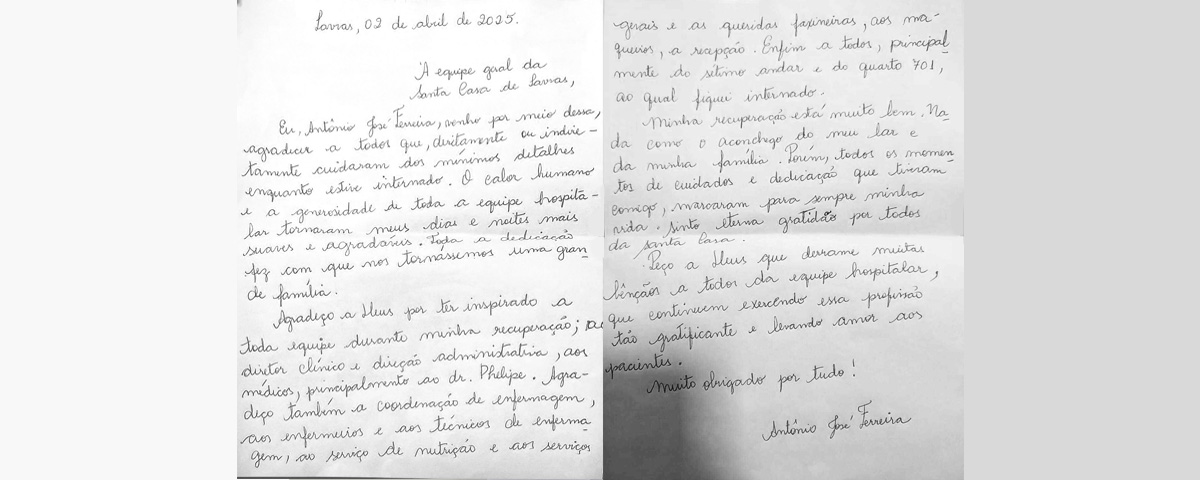 Lavras, 02 de abril de 2025.
À equipe geral da
Santa Casa de Lavras,
Eu, Antônio José Ferreira, venho por meio dessa,
agradecer a todos que, diretamente ou indire-
tamente cuidaram dos mínimos detalhes
enquanto estive internado. O calor humano
e a generosidade de toda a equipe hospita-
lar tornaram meus dias e noites mais
suaves e agradáveis. Toda a dedicação
fez com que nos tornássemos uma gran
de família.
Agradeço a Deus por ter inspirado a
toda equipe durante minha recuperação; ao
diretor clínico e direção administrativa, aos
médicos, principalmente ao dr. Philipe. Agra-
deço também a coordenação de enfermagem,
aos enfermeiros e aos técnicos de enferma
gem, ao serviço de nutrição e aos serviços
gerais e as queridas faxineiras, aos ma-
queiros, a recepção. Enfim a todos, principal
mente do sétimo andar e do quarto 701,
ao qual fiquei internado.
Minha recuperação está muito bem. Na
da como o aconchego do meu lar e
da minha família. Porém, todos os momen
tos de cuidados e dedicação que tiveram
comigo, marcaram para sempre minha
vida. Sinto eterna gratidão por todos
da santa Casa.
Peço a Deus que derrame muitas
bênçãos a todos da equipe hospitalar,
que continuem exercendo essa profissão
tão gratificante e levando amor aos
pacientes.
Muito obrigado por tudo!
Antônio José Ferreira